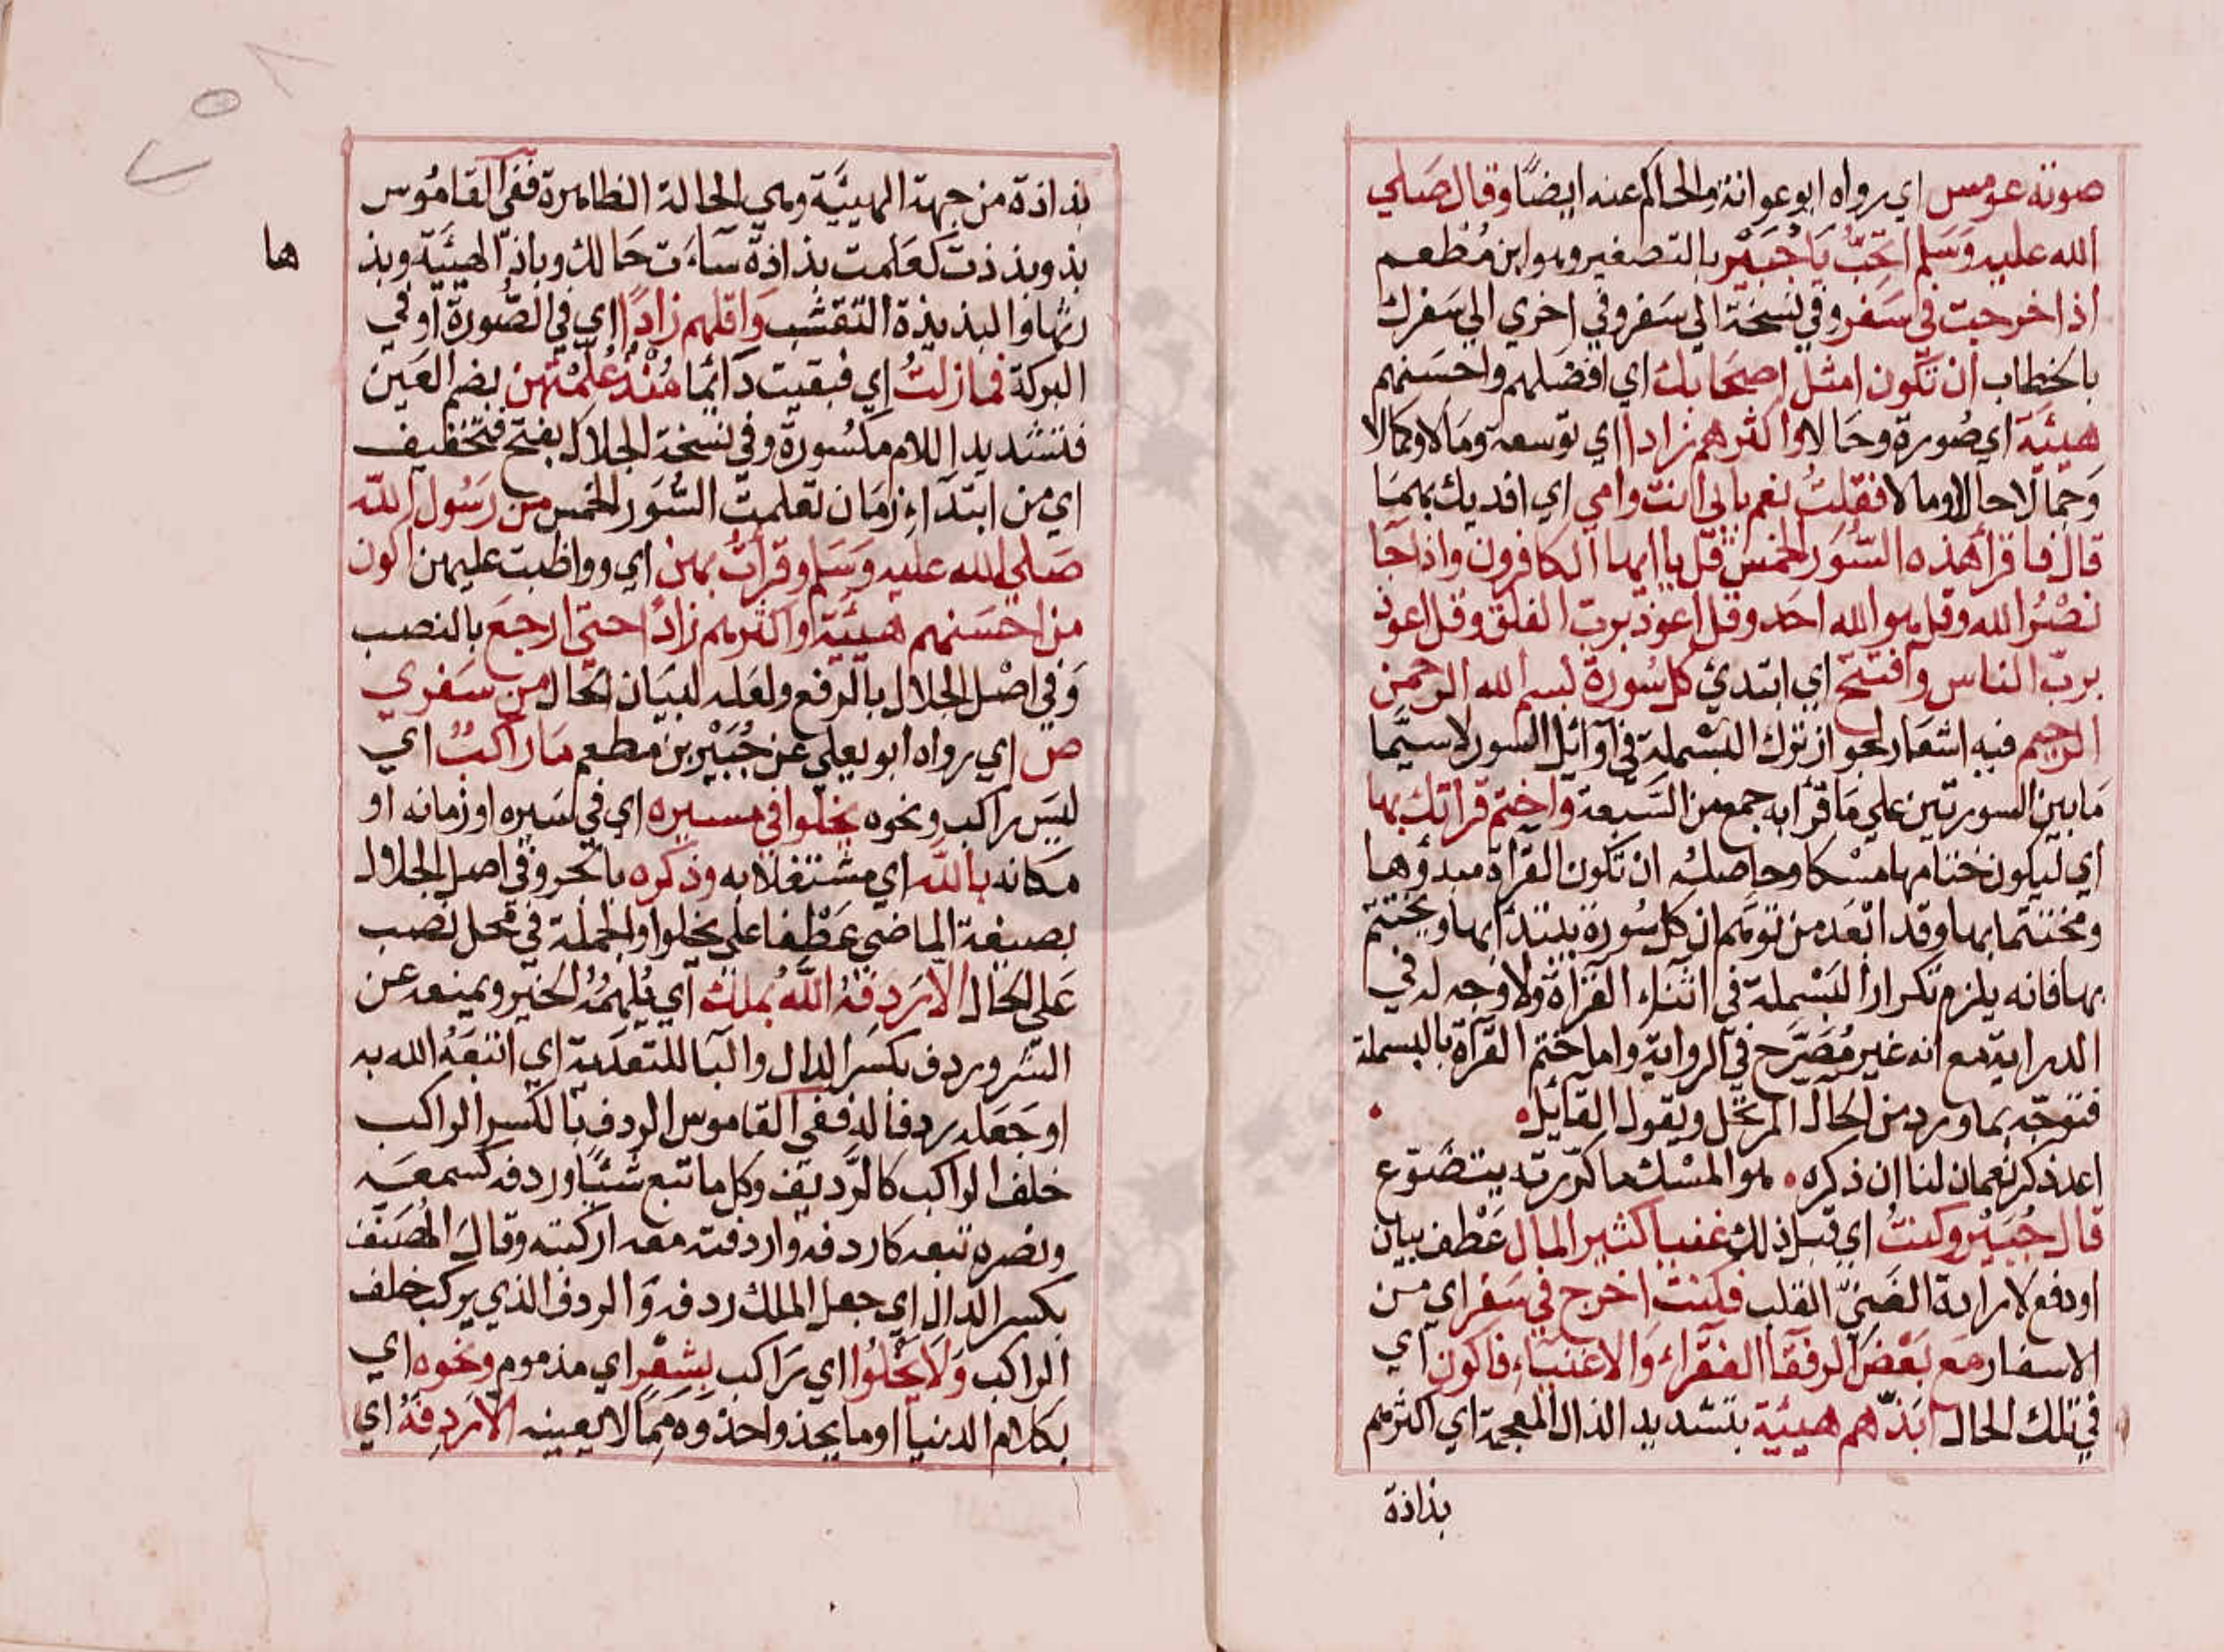 صوته عو مس اي رواه ابو عوانة والحاكم عنه ايضًا وقال صلي
الله عليه وسلم اتحب يا جبير بالتصغير وهو ابن مُطعم
اذا خرجت في سفر وفي نسخة الي سفر وفي اخري الي سفرك
بالخطاب ان تكون امثل اصحابك اي افضلهم واحسنهم
هيئة اي صورة وحالا واكثرهم زادا اي توسعة ومالا وكمالا
وجمالا حالا ومالا فقلتُ نعم بابي انت وامي اي افديك بهما
قال فاقرأ هذه السُّوَر الخمس قل يا ايها الكافرون واذا جا
نصْرُ الله وقل هو الله احد وقل اعوذ برب الفلق وقل اعوذ
بربّ الناس وافتتح اي ابتدئ كل سُورة بسم الله الرحمن
الرحيم فيه اشعار لجواز ترك البسْملة في اوائل السور لاسيّما
ما بين السورتين علي ما قرأ به جمع من السَّبعة واختم قراتك بها
اي ليكون ختامها مسْكا وحاصلهُ ان تكون القرأة مبدؤها
ومختتما بها وقد ابْعَد من توهم ان كل سُورة يبتدأ بها ويختتم
بها فانه يلزم تكرار البَسْملة في اثنآء القرأة ولا وجه له في
الدراية مع انه غير مُصَرَّح في الرواية واما ختم القرآة بالبسملة
فتوجّه بما ورد من الحال المرتحل ويقول القائل
اعد ذكر نعمان لنا ان ذكره هو المسْك ما كرّرته يتضوّع
قال جُبَير وكنتُ اي قبل ذلك غنيا كثير المال عَطْف بيان
او دفع لارادة الغَنِيّ القلب فكنتُ اخرج في سَفر اي من
الاسفار مع بَعْض الرفقآ الفقراء والاغنياء فاكون اي
في تلك الحال ابذّهم هيئة بتشديد الذال المعجمة اي اكثرهم
بذاذة
بذاذة من جهة الهيئَة وهي الحالة الظاهرة ففي القامُوس
بذ وبذذت كعَلمت بذاذة سآءت حَالك وباذّ الهيئَة وبذ
ها
رثّها والبذيذة التقشب وَاقلهم زادًا اي في الصُّورة او في
البركة فما زلتُ اي فبقيت دَائما مُنْذُ عُلّمْتهن بضم العَين
فتشديد اللام مكسُورة وفي نسخة الجلال بفتح فتخفيف
اي من ابتدآء زمَان تعلمت السُّوَر الخمس من رَسُول الله
صَلي الله عليه وَسَلم وقرأتُ بهن اي وواظبت عليهن اكون
من احْسَنهم هيئة واكثرهم زادًا حتي ارجعَ بالنصب
وَفي اصْل الجلال بالرفع ولعَله لبيَان الحال من سَفري
ص اي رواه ابو يعلي عن جُبَيْر بن مطعم مَا راكبٌ اي
ليسَ راكب ونحوه يخلوا في مسيره اي في سَيره او زمانه او
مكانه بالله اي مشتغلا به وذكره بالجر وفي اصل الجلال
بصيغة الماضي عَطْفا علي يخلوا والجملة في محل نصب
عَلي الحال الا رَدِفَهُ اللَّهُ بملك اي يُلهمُهُ الخير ويمنعه عن
الشر وردف بكسر الدال والبا للتعدية اي اتبَعَهُ الله به
او جَعَله ردفا له ففي القاموس الردف بالكسر الراكب
خلف الراكب كالرَّديف وكل ما تبع شَيئًا وردفه كسمعَه
ونصره تبعه كاردفه واردفته معه اركبته وقال المُصَنف
بكسر الدال اي جعل الملك ردفه وَالردف الذي يركب خلف
الراكب وَلَا يَخْلُوا اي رَاكب بِشعْر اي مذموم ونحوه اي
بكلام الدنيا او ما يحذو احذوه مِمّا لا يعينه الا رَدِفَهُ اي